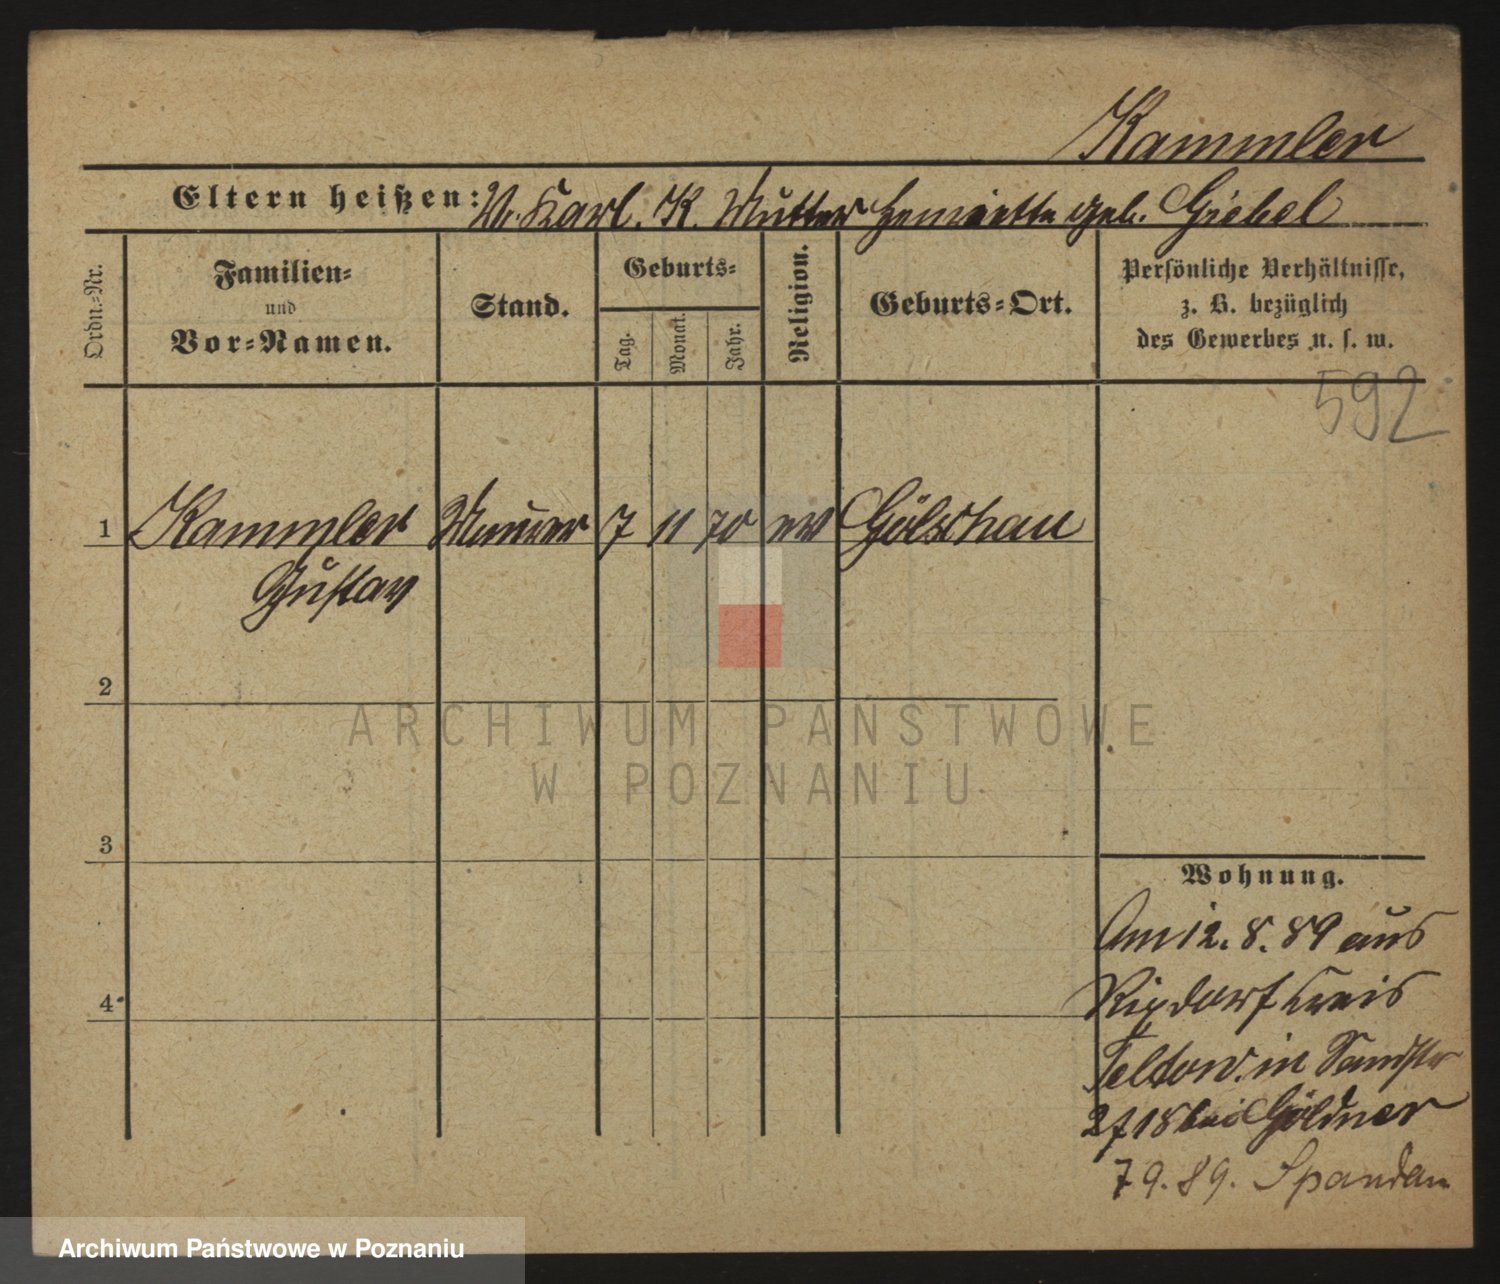 Kammler
Eltern heißen: V. Karl. K. Mutter Henriette geb. Giebel
Ordn.=Nr.
Familien=
und
Vor=Namen.
Stand.
Geburts=
Tag.
Monat.
Jahr.
Religion.
Geburts=Ort.
Persönliche Verhältnisse,
z. B. bezüglich
des Gewerbes u. s. w.
592
1 Kammler Maurer 7 11 70 ev Gölschau
Gustav
2
ARCHIWUM PAŃSTWOWE
W POZNANIU
3
Wohnung.
Am 12. 8. 89 aus
Rixdorf Kreis
4
Teltow. in Sandstr
2/18 bei Göldner
7 9. 89. Spandau
Archiwum Państwowe w Poznaniu